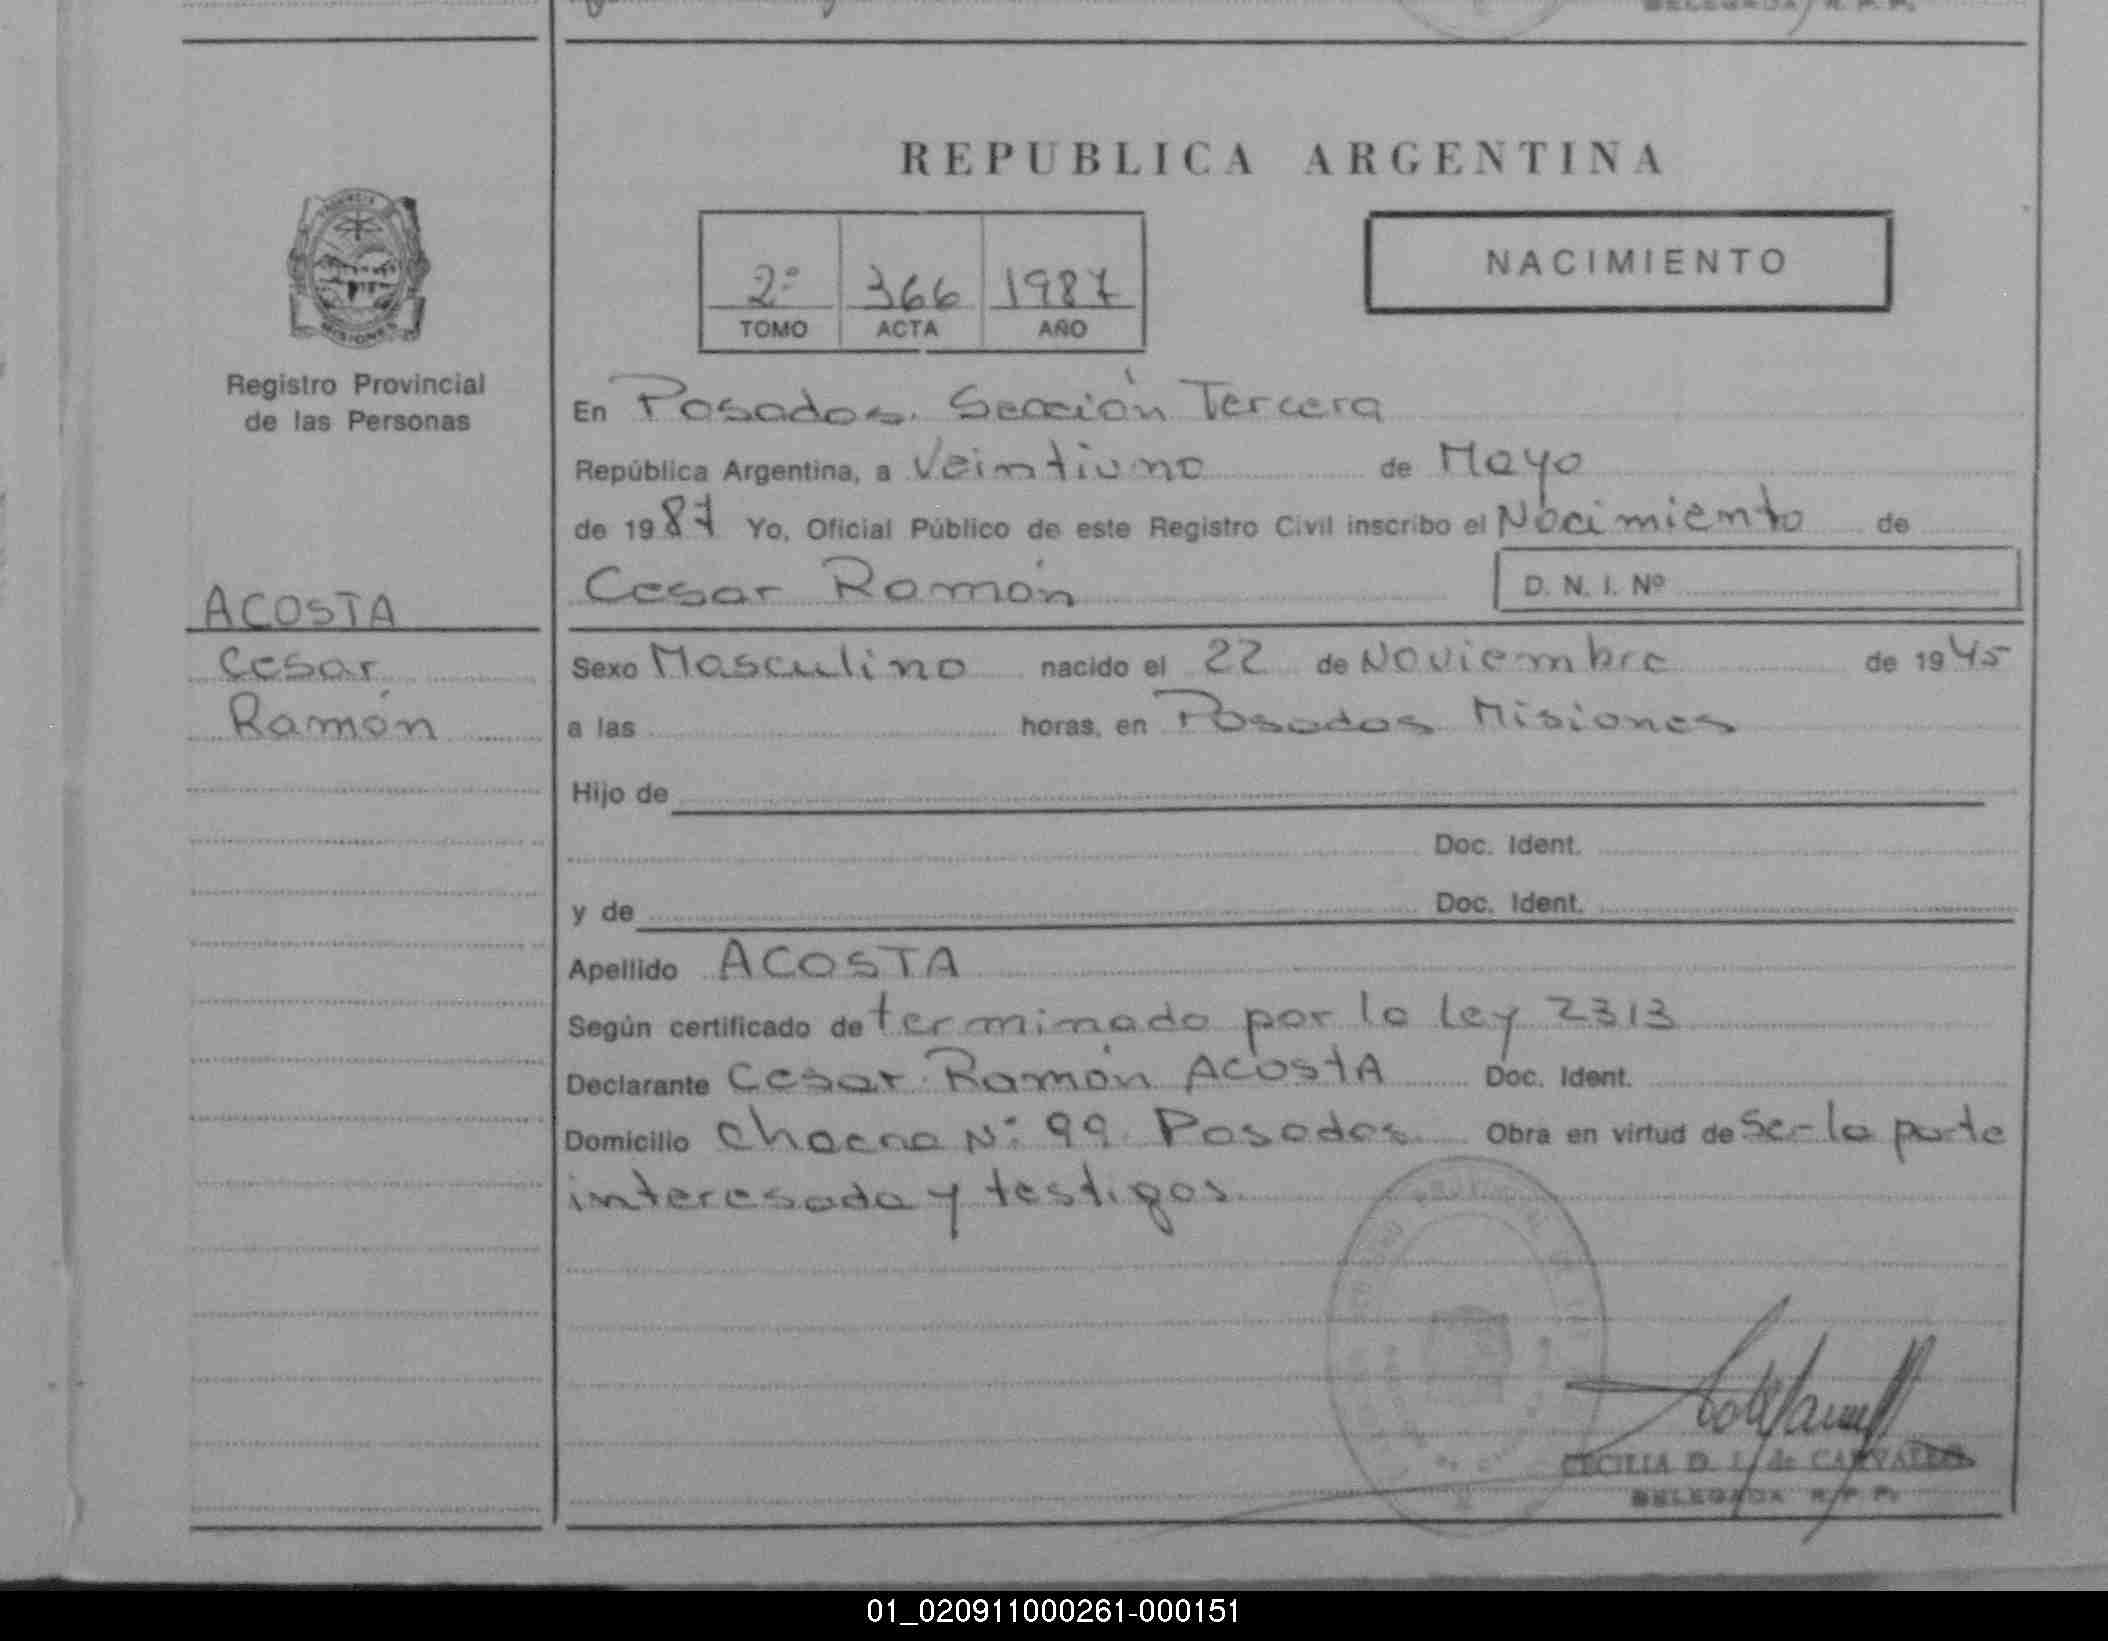 REPUBLICA ARGENTINA
NACIMIENTO
2º 366 1987
TOMO ACTA AÑO
Registro Provincial
de las Personas
En Posadas. Sección Tercera
República Argentina, a Veintiuno de Mayo
de 1987 Yo, Oficial Público de este Registro Civil inscribo el Nacimiento de
Cesar Ramón D. N. I. Nº
ACOSTA
Cesar
Ramón
Sexo Masculino nacido el 22 de Noviembre de 1945
a las horas, en Posadas Misiones
Hijo de
Doc. Ident.
y de Doc. Ident.
Apellido ACOSTA
Según certificado determinado por la Ley 2313
Declarante Cesar Ramón ACOSTA Doc. Ident.
Domicilio Chacra Nº 99 Posadas Obra en virtud de Ser la parte
interesada y testigos.
CECILIA D. de
DELEGADA R.P.P.
01_020911000261-000151